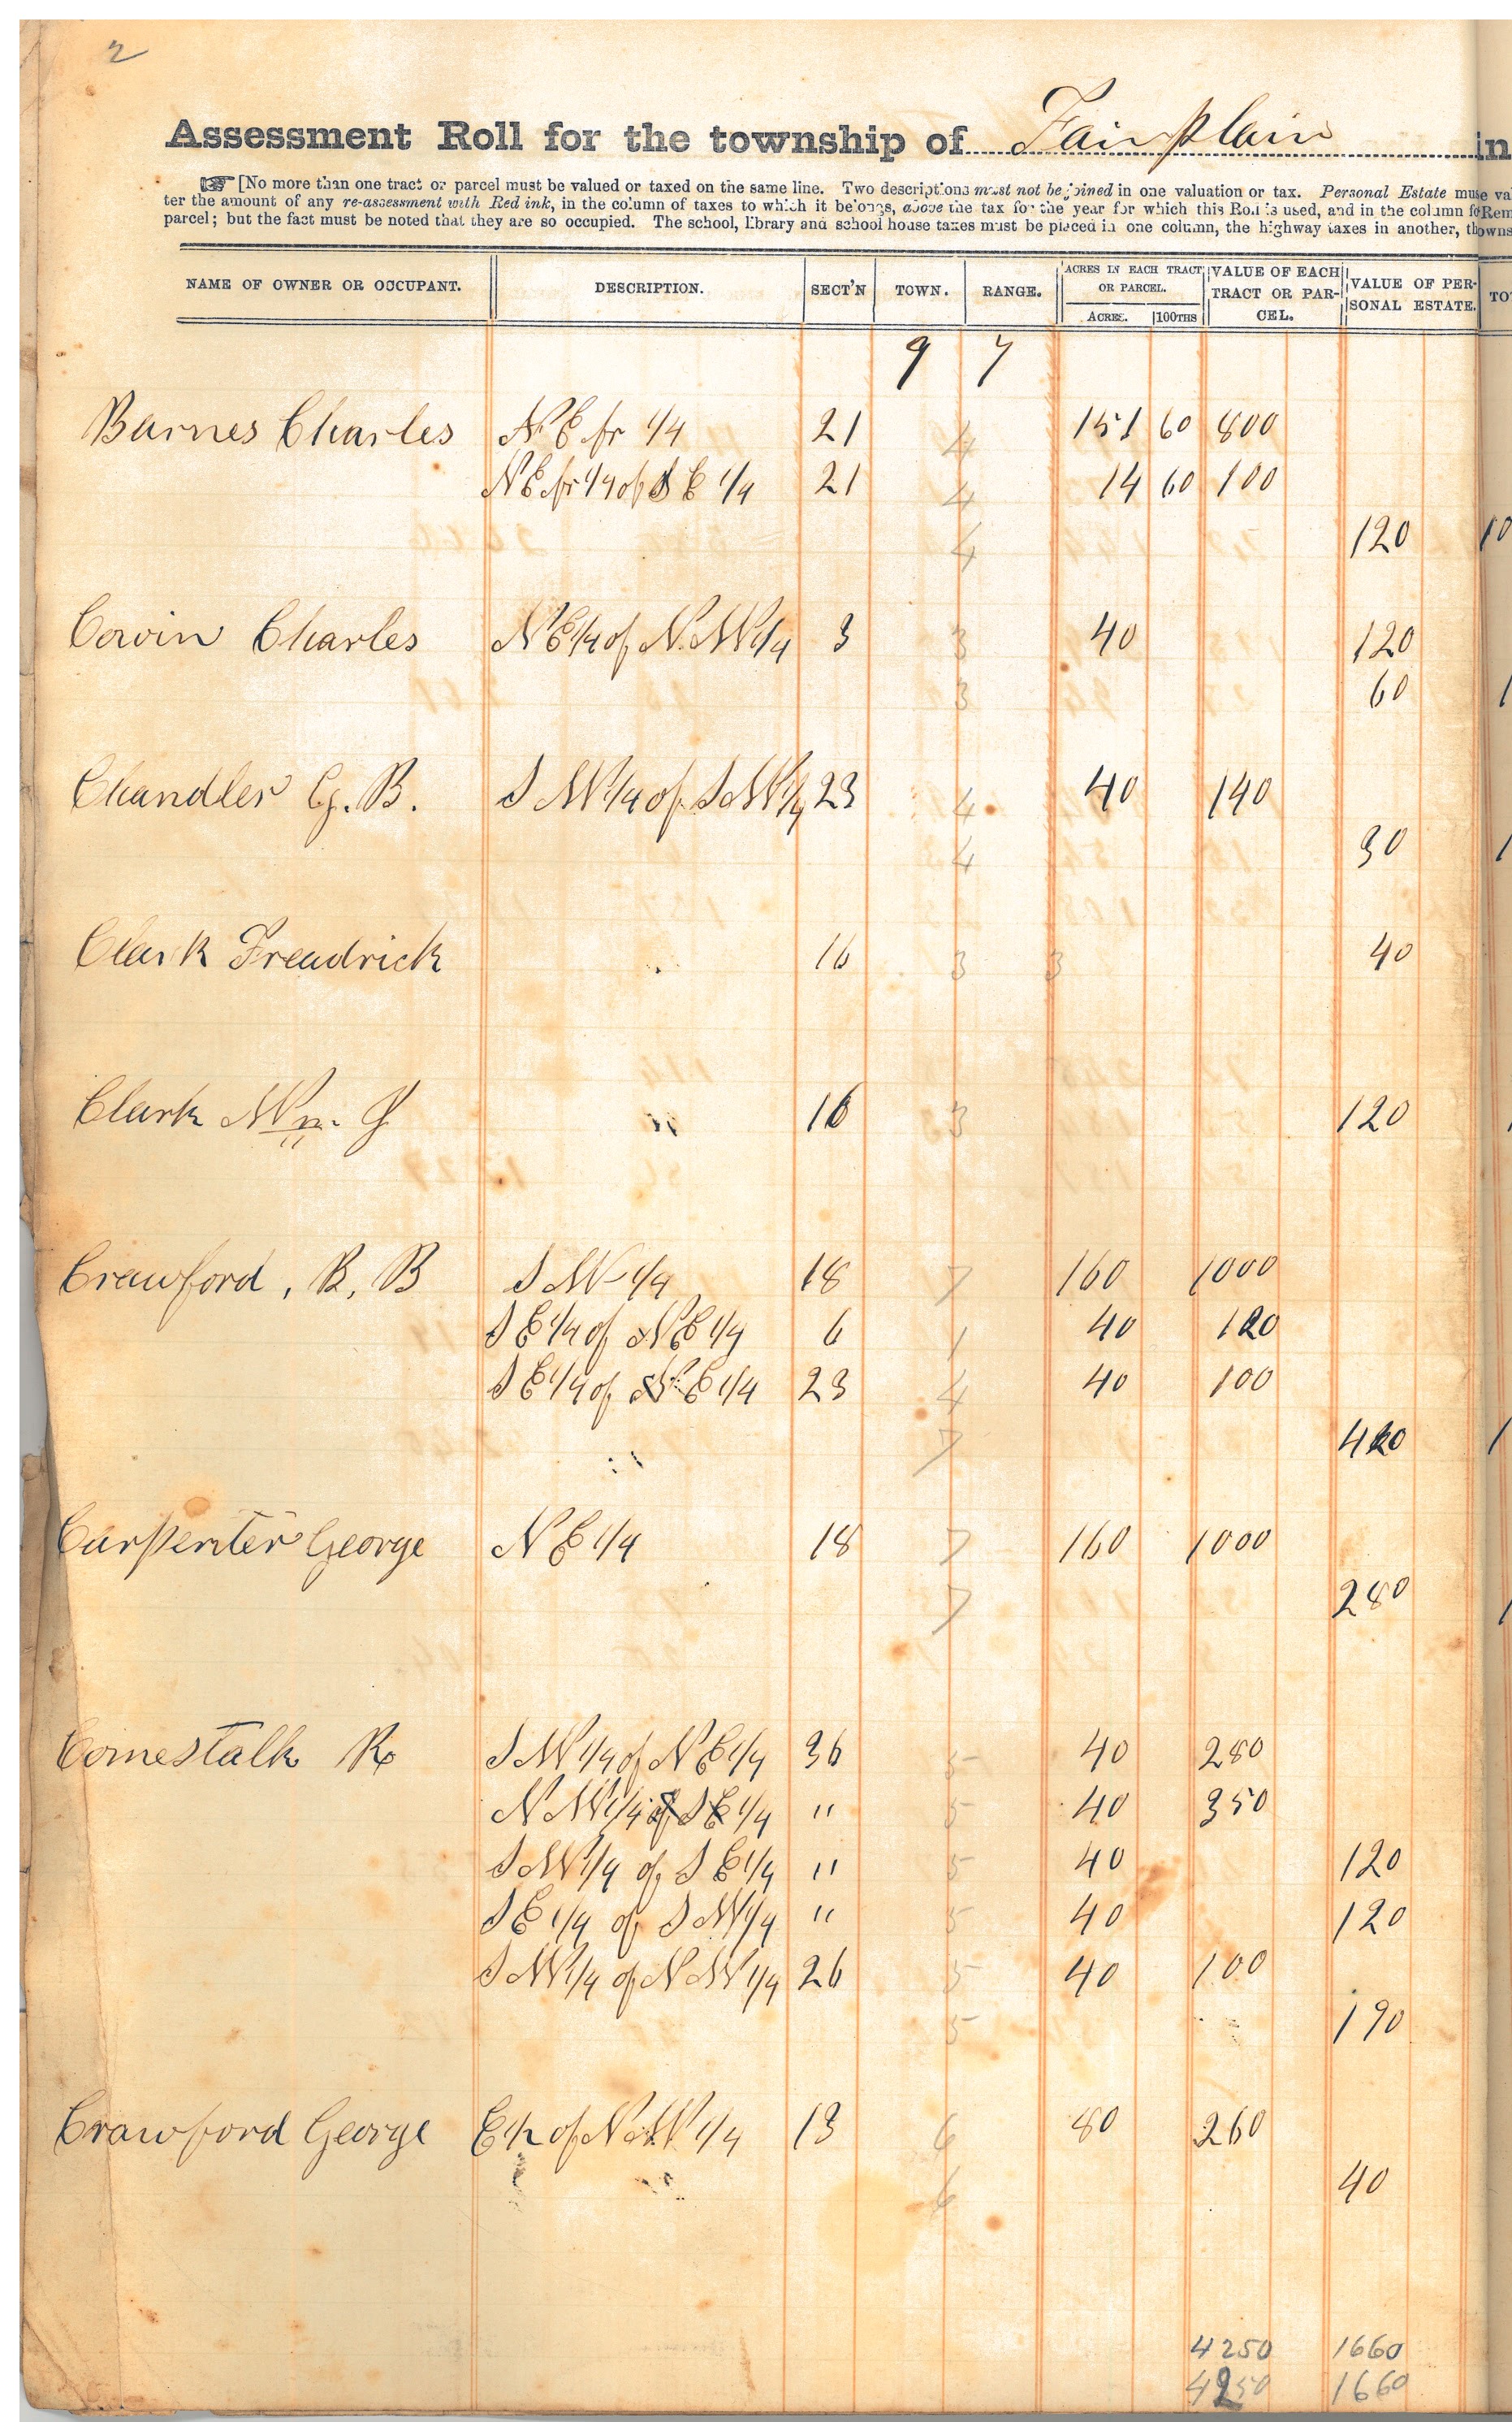 2
Assessment Roll for the township of Fairplain in
☞ [No more than one tract or parcel must be valued or taxed on the same line. Two descriptions must not be joined in one valuation or tax. Personal Estate mus e va
ter the amount of any re-assessment with Red ink, in the column of taxes to which it belongs, above the tax for the year for which this Roll is used, and in the column fo Rem
parcel; but the fact must be noted that they are so occupied. The school, library and school house taxes must be placed in one column, the highway taxes in another, th owns
NAME OF OWNER OR OCCUPANT. DESCRIPTION. SECT'N TOWN. RANGE. ACRES IN EACH TRACT OR PARCEL. ACRES. 100THS VALUE OF EACH TRACT OR PARCEL. VALUE OF PERSONAL ESTATE. TO
9 7
Barnes Charles N E fr 1/4 21 4 151 60 800
N E fr 1/4 of S E 1/4 21 4 14 60 100
4 120 10
Cowin Charles N E 1/4 of N. W 1/4 3 3 40 120
3 60 1
Chandler G. B. S W 1/4 of S W 1/4 23 4 40 140
4 30 1
Clark Freadrick 16 3 3 40
Clark Wm. J " 16 3 120
Crawford, R, B S W 1/4 18 7 160 1000
S E 1/4 of N E 1/4 6 1 40 120
S E 1/4 of N E 1/4 23 4 40 100
7 420 1
Carpenter George N E 1/4 18 7 160 1000
7 280 1
Comestalk R S W 1/4 of N E 1/4 36 5 40 280
N W 1/4 of S E 1/4 " 5 40 350
S W 1/4 of S E 1/4 " 5 40 120
S E 1/4 of S W 1/4 " 5 40 120
S W 1/4 of N W 1/4 26 5 40 100
5 190
Crawford George E 1/2 of N W 1/4 13 6 80 260
6 40
4250 1660
4250 1660